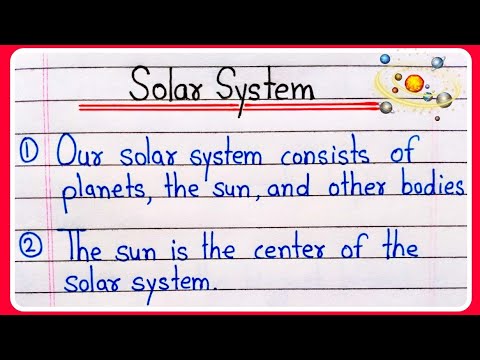 Solar System
① Our solar system consists of
planets, the sun, and other bodies
② The sun is the center of the
solar system.